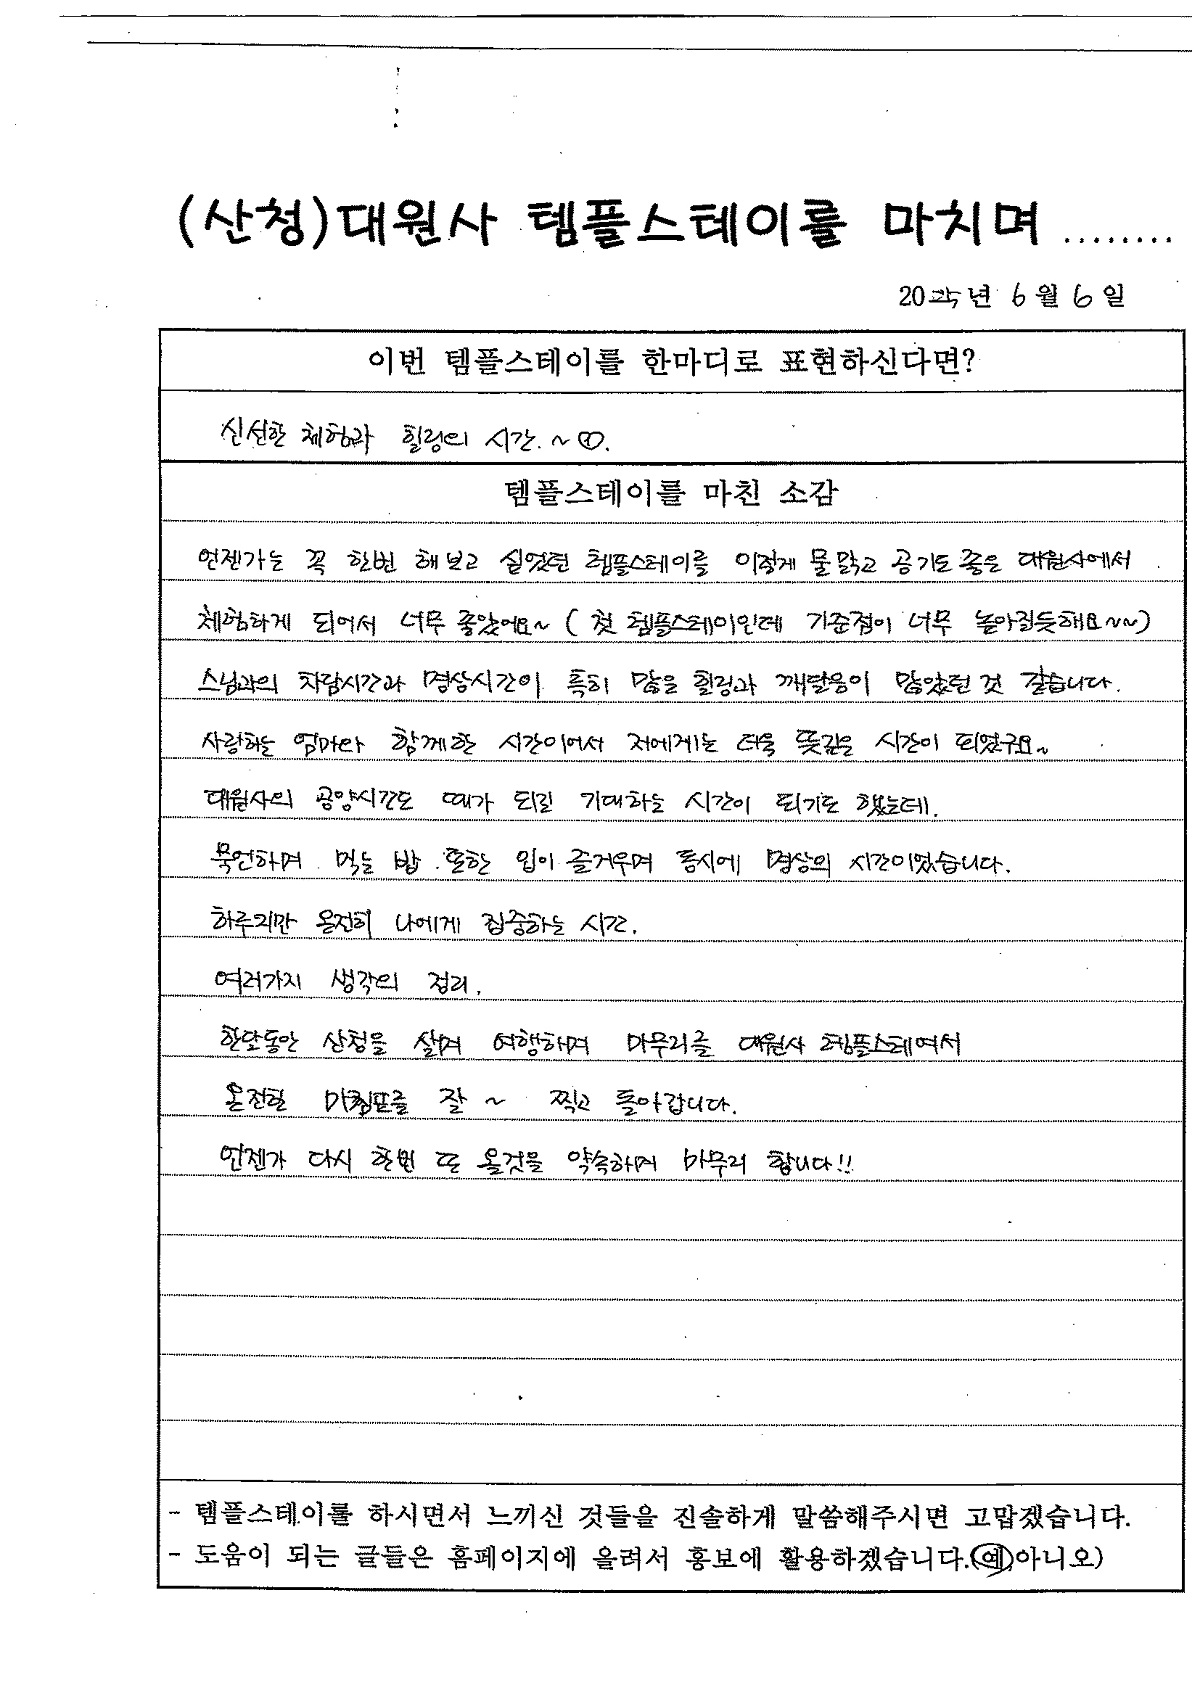 (산청)대원사 템플스테이를 마치며 ........
2025년 6월 6일
이번 템플스테이를 한마디로 표현하신다면?
신선한 체험과 힐링의 시간. ~ ♡.
템플스테이를 마친 소감
언젠가는 꼭 한번 해보고 싶었던 템플스테이를 이렇게 물맑고 공기도 좋은 대원사에서
체험하게 되어서 너무 좋았어요~ ( 첫 템플스테이인데 기준점이 너무 높아질듯해요~~)
스님과의 차담시간과 명상시간이 특히 많은 힐링과 깨달음이 많았던 것 같습니다.
사랑하는 엄마와 함께한 시간이어서 저에게는 더욱 뜻깊은 시간이 되었구요~
대원사의 공양시간도 때가 되길 기대하는 시간이 되기도 했는데.
묵언하며 먹는 밥 또한 입이 즐거우며 동시에 명상의 시간이었습니다.
하루지만 온전히 나에게 집중하는 시간.
여러가지 생각의 정리.
한달동안 산청을 살며 여행하며 마무리를 대원사 템플스테이에서
온전한 마침표를 잘 ~ 찍고 돌아갑니다.
언젠가 다시 한번 또 올것을 약속하며 마무리 합니다!!
- 템플스테이를 하시면서 느끼신 것들을 진솔하게 말씀해주시면 고맙겠습니다.
- 도움이 되는 글들은 홈페이지에 올려서 홍보에 활용하겠습니다.(예,아니오)